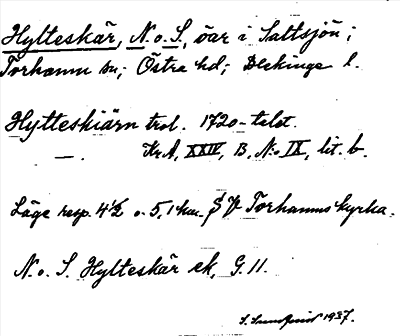 Hylteskär, N. o. S, öar i Saltsjön;
Torhamn sn; Östra hd; Blekinge l.
Hylteskiärn trol. 1720-talet.
— . Kr A, XXIV, B. No IX, lit. b.
Läge resp. 4½ o. 5,1 km. S V Torhamns kyrka.
N. o. S. Hylteskär ek, G. 11.
1937.